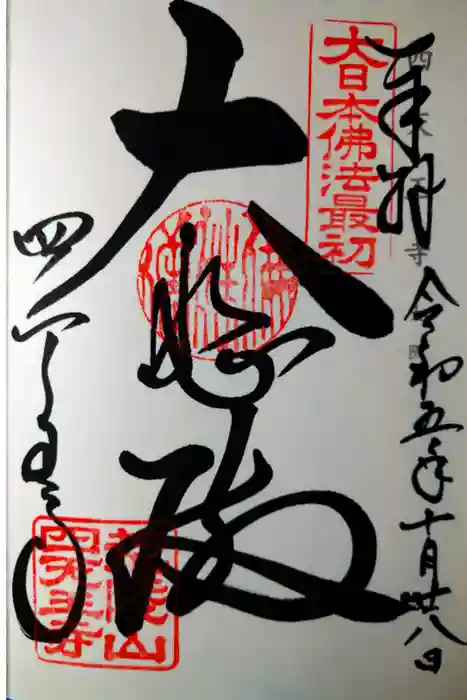 奉拝
令和五年十月廿八日
大日本佛法最初
大悲殿
四天王寺
荒陵山
四天王寺